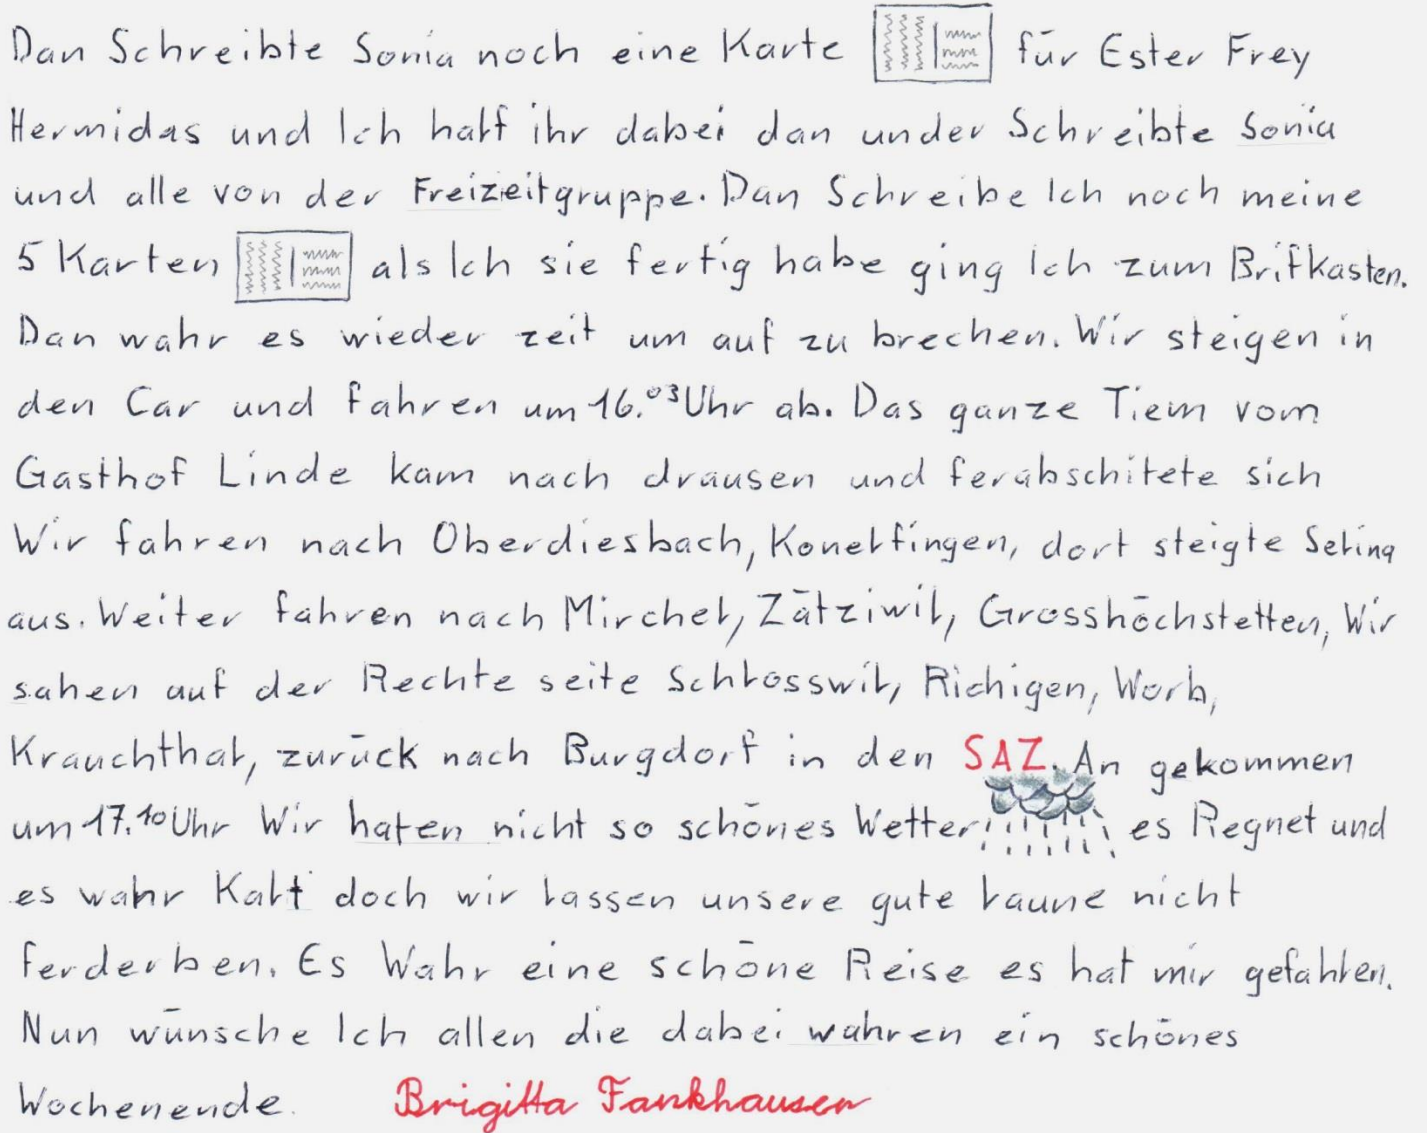 Dan Schreibte Sonia noch eine Karte für Ester Frey
Hermidas und Ich half ihr dabei dan under Schreibte Sonia
und alle von der Freizeitgruppe. Dan Schreibe Ich noch meine
5 Karten als Ich sie fertig habe ging Ich zum Brifkasten.
Dan wahr es wieder zeit um auf zu brechen. Wir steigen in
den Car und fahren um 16.03 Uhr ab. Das ganze Tiem vom
Gasthof Linde kam nach drausen und ferabschitete sich
Wir fahren nach Oberdiesbach, Konelfingen, dort steigte Selina
aus. Weiter fahren nach Mirchel, Zätziwil, Grosshöchstetten, Wir
sahen auf der Rechte seite Schlosswil, Richigen, Worb,
Krauchthal, zurück nach Burgdorf in den SAZ. An gekommen
um 17.10 Uhr Wir haten nicht so schönes Wetter es Regnet und
es wahr Kalt doch wir lassen unsere gute laune nicht
ferderben. Es Wahr eine schöne Reise es hat mir gefahlen.
Nun wünsche Ich allen die dabei wahren ein schönes
Wochenende. Brigitta Fankhauser